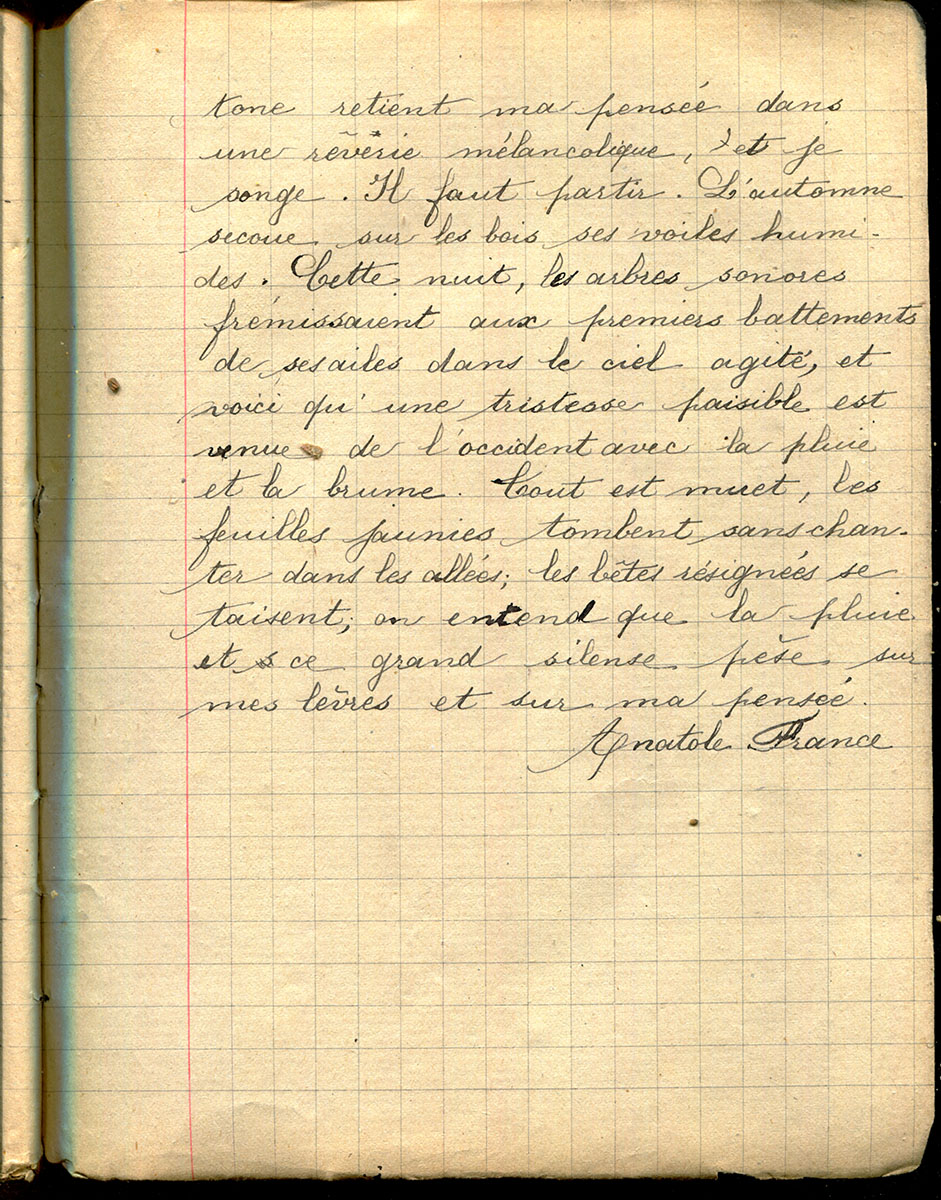 tone retient ma pensée dans
une rêvèrie mélancolique, et je
songe. Il faut partir. L'automne
secoue sur les bois ses voiles humi-
des. Cette nuit, les arbres sonores
frémissaient aux premiers battements
de ses ailes dans le ciel agité, et
voici qu'une tristesse paisible est
venue de l'occident avec la pluie
et la brume. Tout est muet, les
feuilles jaunies tombent sans chan-
ter dans les allées; les bêtes résignées se
taisent; on entend que la pluie
et ce grand silense pèse sur
mes lèvres et sur ma pensée.
Anatole France